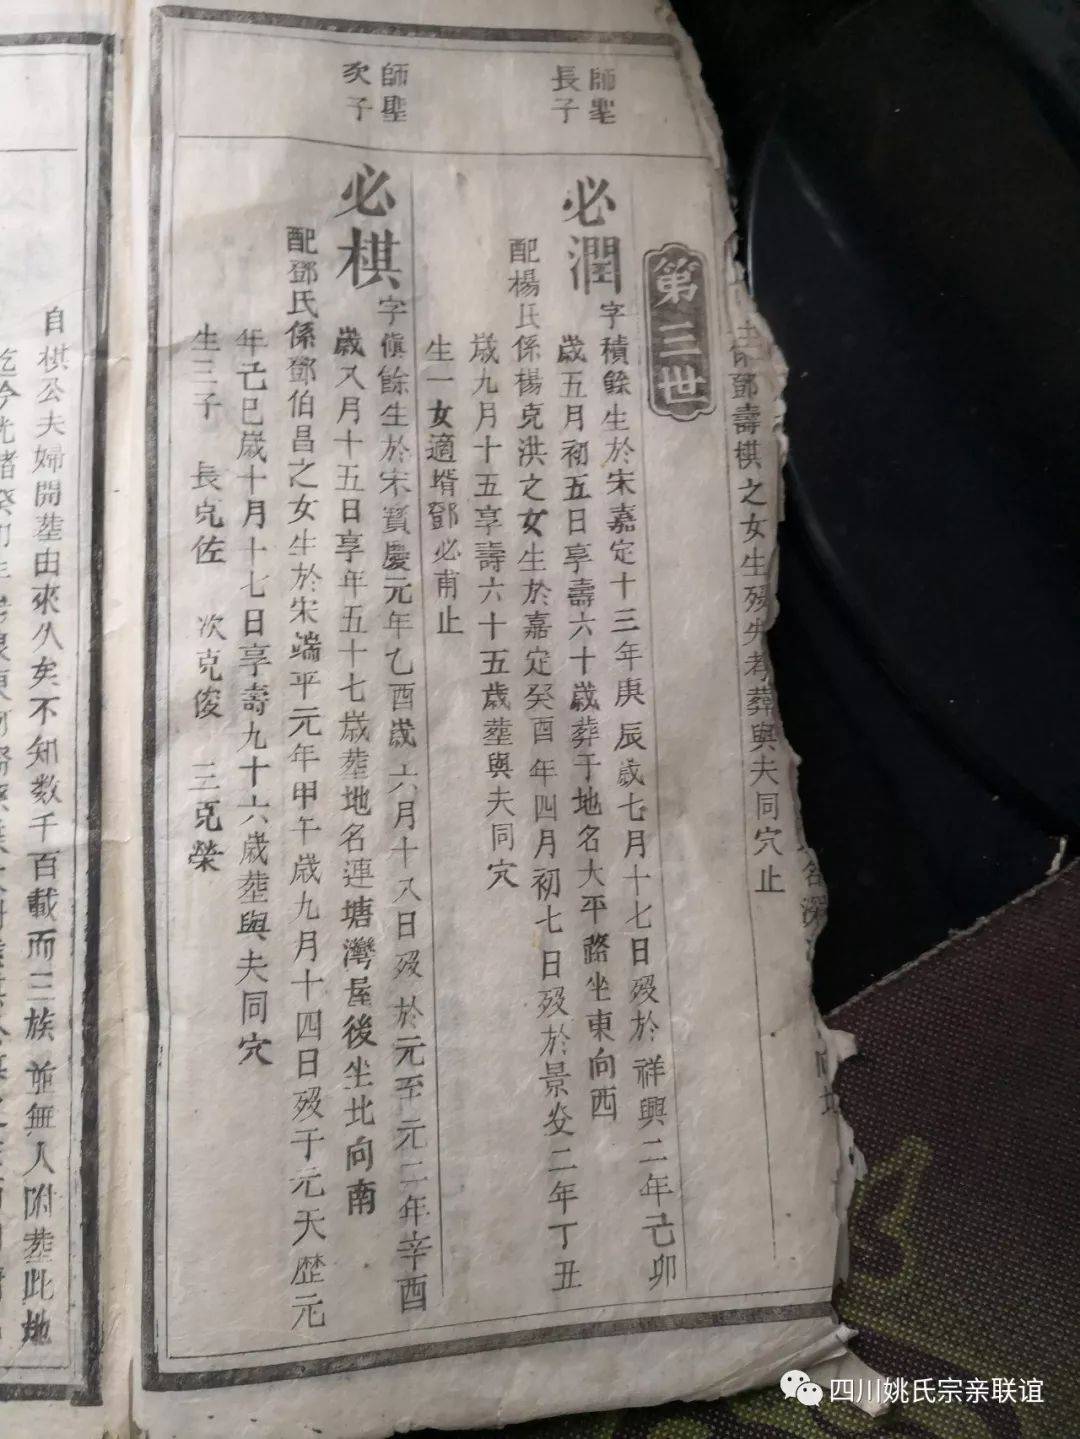 鄧壽棋之女生歿失考葬與夫同穴止
第三世
師聖
長子
必潤
字積餘生於宋嘉定十三年庚辰歲七月十七日歿於祥興二年己卯
歲五月初五日享壽六十歲葬于地名大平路坐東向西
配楊氏係楊克洪之女生於嘉定癸酉年四月初七日歿於景炎二年丁丑
歲九月十五享壽六十五歲塟與夫同穴
生一女適壻鄧必甫止
師聖
次子
必棋
字慎餘生於宋寳慶元年乙酉歲六月十又日歿於元至元二年辛酉
歲又月十五日享年五十七歲塟地名連塘灣屋後坐北向南
配鄧氏係鄧伯昌之女生於宋端平元年甲午歲九月十四日歿于元天歷元
年己巳歲十月十七日享壽九十六歲塟與夫同穴
生三子 長克佐 次克俊 三克榮
自棋公夫婦開塟由來久矣不知数千百載而三族並無人附塟此地
迄今光緒癸卯年
四川姚氏宗亲联谊